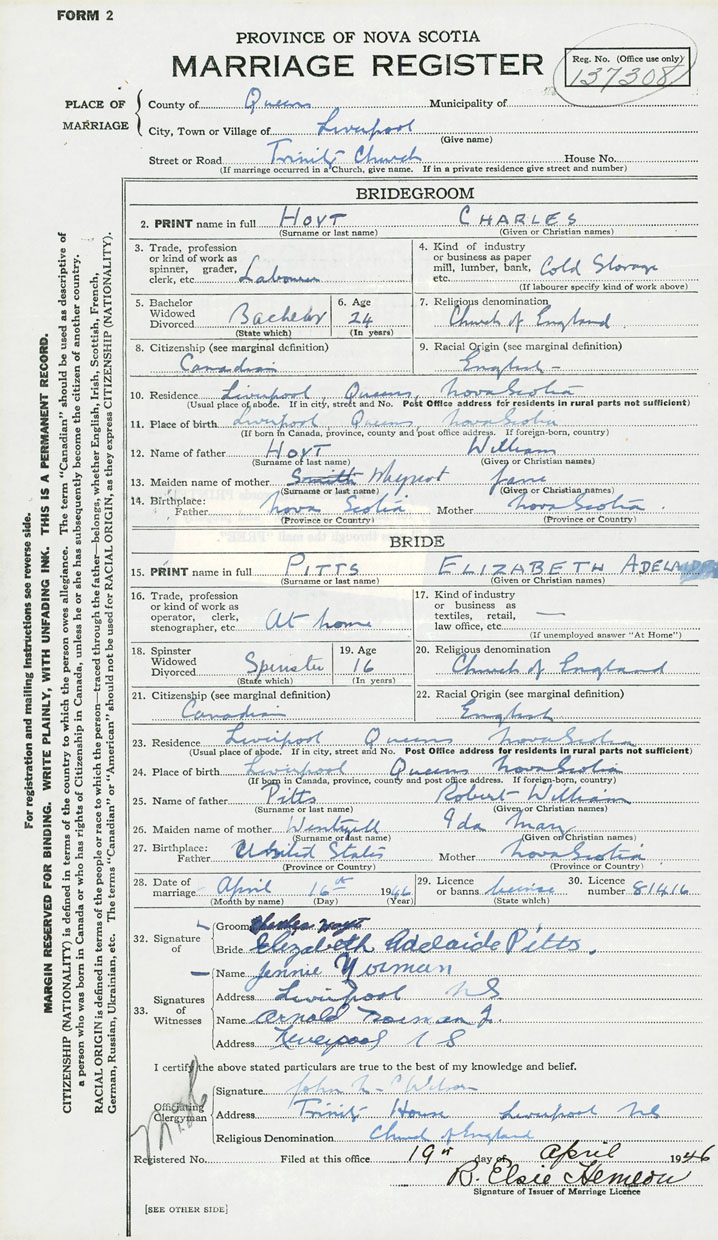 FORM 2
PROVINCE OF NOVA SCOTIA
MARRIAGE REGISTER
Reg. No. (Office use only)
137308
PLACE OF MARRIAGE
County of Queens Municipality of
City, Town or Village of Liverpool
(Give name)
Street or Road Trinity Church House No.
(If marriage occurred in a Church, give name. If in a private residence give street and number)
BRIDEGROOM
2. PRINT name in full HOYT CHARLES
(Surname or last name) (Given or Christian names)
3. Trade, profession or kind of work as spinner, grader, clerk, etc. Labourer
4. Kind of industry or business as paper mill, lumber, bank, etc. Cold Storage
(If labourer specify kind of work above)
5. Bachelor Widowed Divorced Bachelor
(State which)
6. Age 24
(In years)
7. Religious denomination
Church of England
8. Citizenship (see marginal definition)
Canadian
9. Racial Origin (see marginal definition)
English -
10. Residence Liverpool, Queens, Nova Scotia
(Usual place of abode. If in city, street and No. Post Office address for residents in rural parts not sufficient)
11. Place of birth Liverpool Queens, Nova Scotia
(If born in Canada, province, county and post office address. If foreign-born, country)
12. Name of father HOYT William
(Surname or last name) (Given or Christian names)
13. Maiden name of mother Smith Whynot Jane
(Surname or last name) (Given or Christian names)
14. Birthplace: Father Nova Scotia Mother Nova Scotia
(Province or Country) (Province or Country)
BRIDE
15. PRINT name in full PITTS ELIZABETH ADELAIDE
(Surname or last name) (Given or Christian names)
16. Trade, profession or kind of work as operator, clerk, stenographer, etc. At home
17. Kind of industry or business as textiles, retail, law office, etc. —
(If unemployed answer "At Home")
18. Spinster Widowed Divorced Spinster
(State which)
19. Age 16
(In years)
20. Religious denomination
Church of England
21. Citizenship (see marginal definition)
Canadian
22. Racial Origin (see marginal definition)
English
23. Residence Liverpool Queens Nova Scotia
(Usual place of abode. If in city, street and No. Post Office address for residents in rural parts not sufficient)
24. Place of birth Liverpool Queens Nova Scotia
(If born in Canada, province, county and post office address. If foreign-born, country)
25. Name of father Pitts Robert William
(Surname or last name) (Given or Christian names)
26. Maiden name of mother Wentzell Ida May
(Surname or last name) (Given or Christian names)
27. Birthplace: Father United States Mother Nova Scotia
(Province or Country) (Province or Country)
28. Date of marriage April 16th 1946
(Month by name) (Day) (Year)
29. Licence or banns license
(State which)
30. Licence number 81416
32. Signature of
Groom Charles Hoyt
Bride Elizabeth Adelaide Pitts.
33. Signatures of Witnesses
Name Jennie Norman
Address Liverpool NS
Name Arnold Norman
Address Liverpool NS
I certify the above stated particulars are true to the best of my knowledge and belief.
Officiating Clergyman
Signature John Wilson
Address Trinity House Liverpool NS
Religious Denomination Church of England
Registered No. Filed at this office 19th day of April 1946
R. Elsie Hemeon
Signature of Issuer of Marriage Licence
[SEE OTHER SIDE]
For registration and mailing instructions see reverse side.
MARGIN RESERVED FOR BINDING. WRITE PLAINLY, WITH UNFADING INK. THIS IS A PERMANENT RECORD.
CITIZENSHIP (NATIONALITY) is defined in terms of the country to which the person owes allegiance. The term "Canadian" should be used as descriptive of
a person who was born in Canada or who has rights of Citizenship in Canada, unless he or she has subsequently become the citizen of another country.
RACIAL ORIGIN is defined in terms of the people or race to which the person—traced through the father—belongs, whether English, Irish, Scottish, French,
German, Russian, Ukrainian, etc. The terms "Canadian" or "American" should not be used for RACIAL ORIGIN, as they express CITIZENSHIP (NATIONALITY).